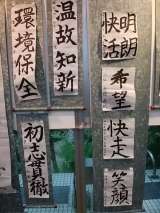 環境保全
温故知新
初志貫徹
明朗
快活
希望
快走
笑顔